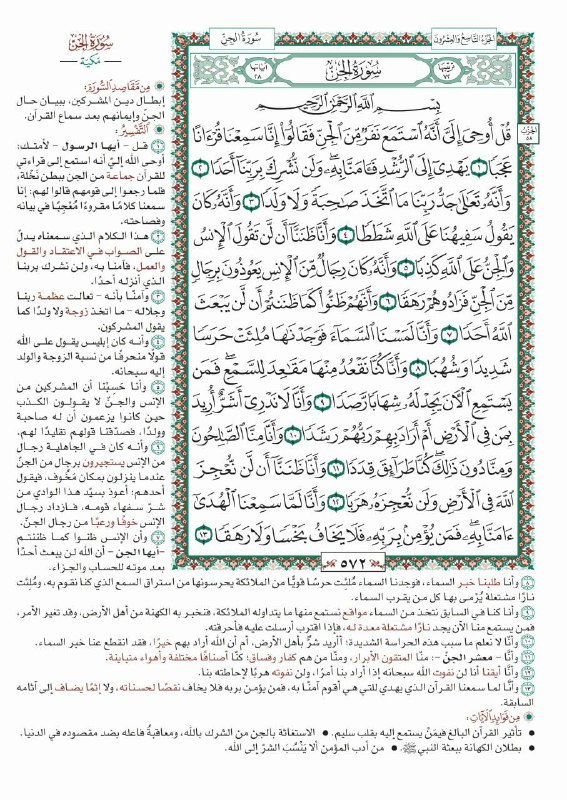 الجزء التاسع والعشرون
سورة الجن
ترتيبها
٧٢
سُورَةُ الجِنِّ
آياتها
٢٨
بِسْمِ اللَّهِ الرَّحْمَٰنِ الرَّحِيمِ
قُلْ أُوحِيَ إِلَيَّ أَنَّهُ اسْتَمَعَ نَفَرٌ مِّنَ الْجِنِّ فَقَالُوا إِنَّا سَمِعْنَا قُرْءَانًا
عَجَبًا ١ يَهْدِي إِلَى الرُّشْدِ فَـَٔامَنَّا بِهِ وَلَن نُّشْرِكَ بِرَبِّنَا أَحَدًا ٢
وَأَنَّهُ تَعَالَىٰ جَدُّ رَبِّنَا مَا اتَّخَذَ صَاحِبَةً وَلَا وَلَدًا ٣ وَأَنَّهُ كَانَ
يَقُولُ سَفِيهُنَا عَلَى اللَّهِ شَطَطًا ٤ وَأَنَّا ظَنَنَّا أَن لَّن تَقُولَ الْإِنسُ
وَالْجِنُّ عَلَى اللَّهِ كَذِبًا ٥ وَأَنَّهُ كَانَ رِجَالٌ مِّنَ الْإِنسِ يَعُوذُونَ بِرِجَالٍ
مِّنَ الْجِنِّ فَزَادُوهُمْ رَهَقًا ٦ وَأَنَّهُمْ ظَنُّوا كَمَا ظَنَنتُمْ أَن لَّن يَبْعَثَ
اللَّهُ أَحَدًا ٧ وَأَنَّا لَمَسْنَا السَّمَاءَ فَوَجَدْنَاهَا مُلِئَتْ حَرَسًا
شَدِيدًا وَشُهُبًا ٨ وَأَنَّا كُنَّا نَقْعُدُ مِنْهَا مَقَاعِدَ لِلسَّمْعِ فَمَن
يَسْتَمِعِ الْآنَ يَجِدْ لَهُ شِهَابًا رَّصَدًا ٩ وَأَنَّا لَا نَدْرِي أَشَرٌّ أُرِيدَ
بِمَن فِي الْأَرْضِ أَمْ أَرَادَ بِهِمْ رَبُّهُمْ رَشَدًا ١٠ وَأَنَّا مِنَّا الصَّالِحُونَ
وَمِنَّا دُونَ ذَٰلِكَ كُنَّا طَرَائِقَ قِدَدًا ١١ وَأَنَّا ظَنَنَّا أَن لَّن نُّعْجِزَ
اللَّهَ فِي الْأَرْضِ وَلَن نُّعْجِزَهُ هَرَبًا ١٢ وَأَنَّا لَمَّا سَمِعْنَا الْهُدَىٰ
ءَامَنَّا بِهِ فَمَن يُؤْمِن بِرَبِّهِ فَلَا يَخَافُ بَخْسًا وَلَا رَهَقًا ١٣
٥٧٢
الحزب
٥٨
سُورَةُ الجِنِّ
— مكية —
من مقاصد السورة:
إبطال دين المشركين، ببيان حال
الجن وإيمانهم بعد سماع القرآن.
التفسير:
١ قل - أيها الرسول - لأمتك:
أوحى الله إليّ أنه استمع إلى قراءتي
للقرآن جماعة من الجن ببطن نَخْلة،
فلما رجعوا إلى قومهم قالوا لهم: إنا
سمعنا كلامًا مقروءًا مُعْجِبًا في بيانه
وفصاحته.
٢ هذا الكلام الذي سمعناه يدلّ
على الصواب في الاعتقاد والقول
والعمل، فآمنا به، ولن نشرك بربنا
الذي أنزله أحدًا.
٣ وآمنا بأنه - تعالت عظمة ربنا
وجلاله - ما اتخذ زوجة ولا ولدًا كما
يقول المشركون.
٤ وأنه كان إبليس يقول على الله
قولًا منحرفًا من نسبة الزوجة والولد
إليه سبحانه.
٥ وأنا حسبنا أن المشركين من
الإنس والجنّ لا يقولون الكذب
حين كانوا يزعمون أن له صاحبة
وولدًا، فصدّقنا قولهم تقليدًا لهم.
٦ وأنه كان في الجاهلية رجال
من الإنس يستجيرون برجال من الجن
عندما ينزلون بمكان مخُوف، فيقول
أحدهم: أعوذ بسيّد هذا الوادي من
شرّ سفهاء قومه، فازداد رجال
الإنس خوفًا ورعبًا من رجال الجن.
٧ وأن الإنس ظنوا كما ظننتم
-أيها الجن- أن الله لن يبعث أحدًا
بعد موته للحساب والجزاء.
٨ وأنا طلبنا خبر السماء، فوجدنا السماء مُلِئت حرسًا قويًّا من الملائكة يحرسونها من استراق السمع الذي كنا نقوم به، ومُلِئت
نارًا مشتعلة يُرمى بها كل من يقرب السماء.
٩ وأنا كنا في السابق نتخذ من السماء مواقع نستمع منها ما يتداوله الملائكة، فنخبر به الكهنة من أهل الأرض، وقد تغير الأمر،
فمن يستمع منا الآن يجد نارًا مشتعلة معدة له، فإذا اقترب أرسلت عليه فأحرقته.
١٠ وأنا لا نعلم ما سبب هذه الحراسة الشديدة؛ أأريد شرٌّ بأهل الأرض، أم أن الله أراد بهم خيرًا، فقد انقطع عنا خبر السماء.
١١ وأنا - معشر الجن -: منّا المتقون الأبرار، ومنّا من هم كفار وفساق؛ كنّا أصنافًا مختلفة وأهواء متباينة.
١٢ وأنا أيقنا أنا لن نفوت الله سبحانه إذا أراد بنا أمرًا، ولن نفوته هربًا لإحاطته بنا.
١٣ وأنا لما سمعنا القرآن الذي يهدي للتي هي أقوم آمنا به، فمن يؤمن بربه فلا يخاف نقصًا لحسناته، ولا إثمًا يضاف إلى آثامه
السابقة.
من فوائد الآيات:
• تأثير القرآن البالغ فيمَنْ يستمع إليه بقلب سليم. • الاستغاثة بالجن من الشرك بالله، ومعاقبةُ فاعله بضد مقصوده في الدنيا.
• بطلان الكهانة ببعثة النبي ﷺ. • من أدب المؤمن ألا يَنْسُبَ الشرّ إلى الله.